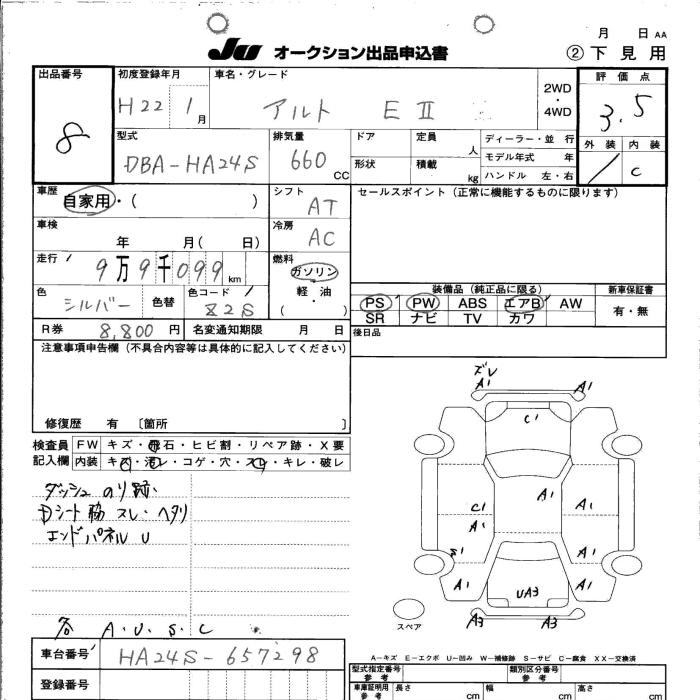 月 日 AA
JU オークション出品申込書 ② 下見用
出品番号 初度登録年月 車名・グレード 2WD・4WD 評価点
8 H22 1月 アルト EⅡ 3.5
型式 排気量 ドア 定員 人 ディーラー・並行 外装 内装
DBA-HA24S 660 CC 形状 積載 kg モデル年式 年 / C
ハンドル 左・右
車歴 自家用・( ) シフト AT セールスポイント(正常に機能するものに限ります)
車検 年 月( 日) 冷房 AC
走行 9万9千099 km 燃料 ガソリン 軽・油 ( )
色 シルバー 色替 色コード Z2S 装備品(純正品に限る) 新車保証書
PS PW ABS エアB AW 有・無
SR ナビ TV カワ
R券 8,800円 名変通知期限 月 日 後日品
注意事項申告欄(不具合内容等は具体的に記入してください)
修復歴 有 〔箇所 〕
検査員 FW キズ・飛石・ヒビ割・リペア跡・X要
記入欄 内装 キズ・汚レ・コゲ・穴・スレ・キレ・破レ
ダッシュ のり跡
Dシート脇 スレ・ヘタリ
エンドパネル U
各 A・U・S・C
ズレ
A1 A1
C1
A1
C1 A1
A1
S1 A1
A1 UA3 A1
A3 A3
スペア
A-キズ E-エクボ U-凹み W-補修跡 S-サビ C-腐食 XX-交換済
車台番号 HA24S-657298
登録番号
型式指定番号 参考 類別区分番号 参考
車庫証明用 参考 長さ cm 幅 cm 高さ cm